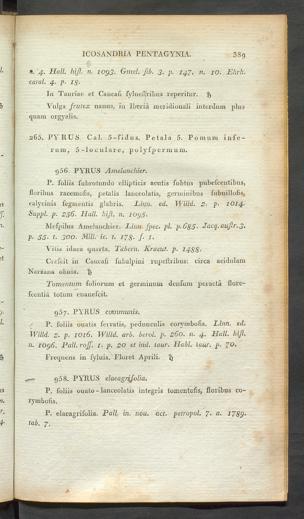 ICOSANDRIA PENTAGYNIA. 389
n. 4. Hall. hiſt. n. 1093. Gmel. ſib. 3. p. 147. n. 10. Ehrh.
caral. 4. p. 18.
In Tauriae et Caucaſi ſylueſtribus reperitur. ♄
Vulgo frutex nanus, in Iberia meridionali interdum plus
quam orgyalis.
265. PYRUS Cal. 5-fidus. Petala 5. Pomum infe-
rum, 5-loculare, polyſpermum.
956. PYRUS Amelanchier.
P. foliis ſubrotundo ellipticis acutis ſubtus pubeſcentibus,
floribus racemoſis, petalis lanceolatis, germinibus ſubuilloſis,
calycinis ſegmentis glabris. Linn. ed. Willd. 2. p. 1014.
Suppl. p. 256. Hall. hiſt. n. 1095.
Meſpilus Amelanchier. Linn. ſpec. pl. p. 685. Jacq. auſtr. 3.
p. 55. t. 300. Mill. ic. t. 178. f. 1.
Vitis idaea quarta. Tabern. Kraeut. p. 1488.
Creſcit in Caucaſi ſubalpini rupeſtribus: circa acidulam
Narzana obuia. ♄
Tomentum foliorum et germinum denſum peractâ flore-
ſcentiâ totum euaneſcit.
957. PYRUS communis.
P. foliis ouatis ſerratis, pedunculis corymboſis. Linn. ed.
Willd. 2. p. 1016. Willd. arb. berol. p. 260. n. 4. Hall. hiſt.
n. 1096. Pall. roſſ. 1. p. 20 et ind. taur. Habl. taur. p. 70.
Frequens in ſyluis. Floret Aprili. ♄
958. PYRUS elaeagrifolia.
P. foliis ouato-lanceolatis integris tomentoſis, floribus co-
rymboſis.
P. elaeagrifolia. Pall. in nou. act. petropol. 7. a. 1789.
tab. 7.